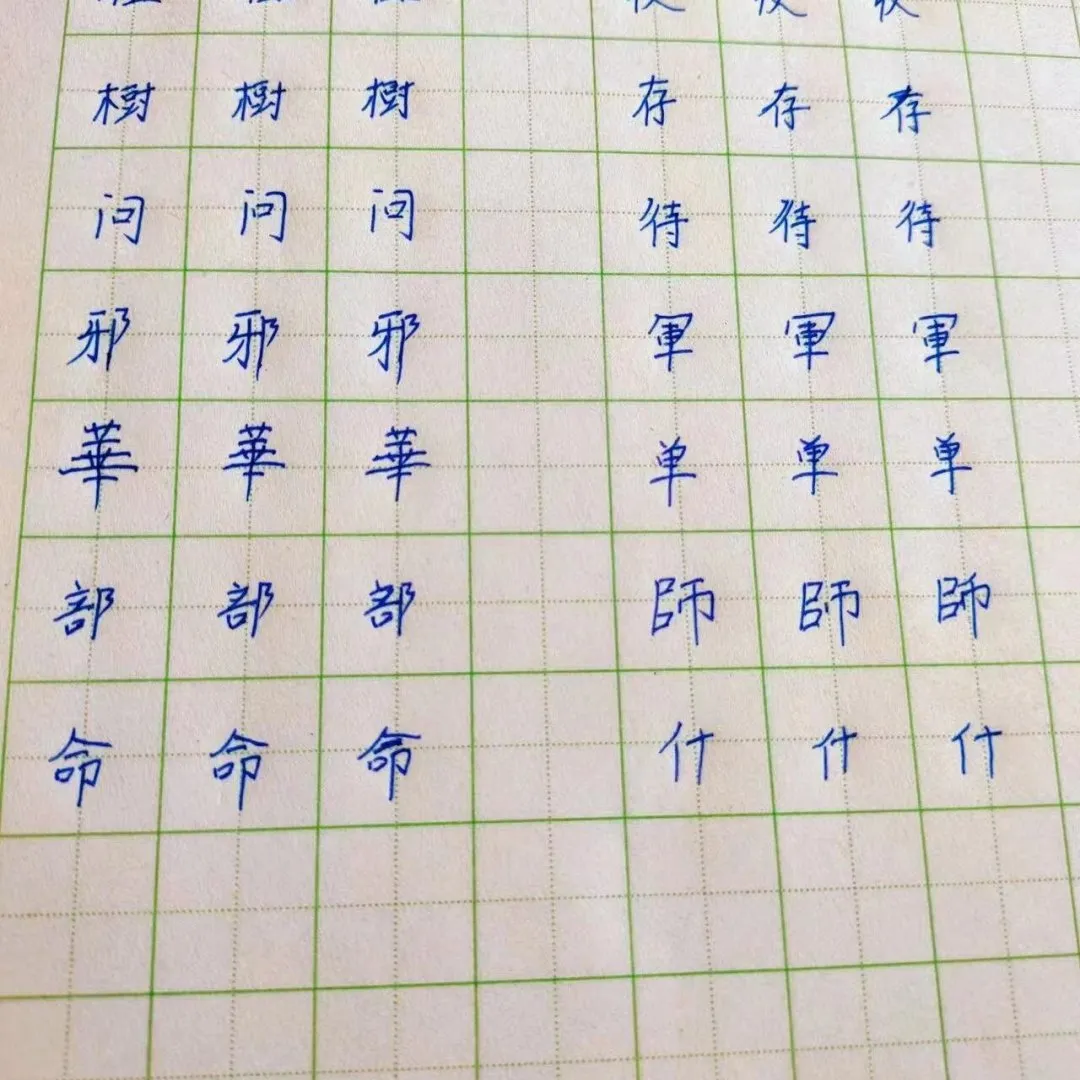 樹 樹 樹 存 存 存
问 问 问 待 待 待
邪 邪 邪 軍 軍 軍
華 華 華 单 单 单
部 部 部 師 師 師
命 命 命 什 什 什